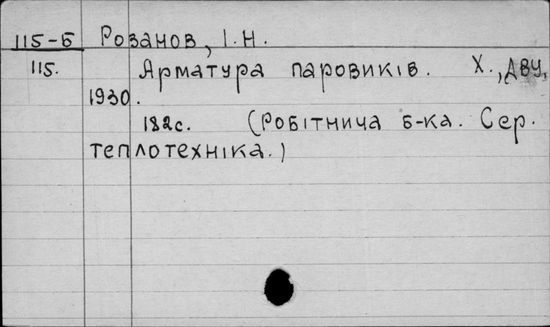 115-Б Розанов, І.Н.
115. Арматура паровиків. Х., ДВУ,
1930.
182с. (Робітнича б-ка. Сер.
теплотехніка.)